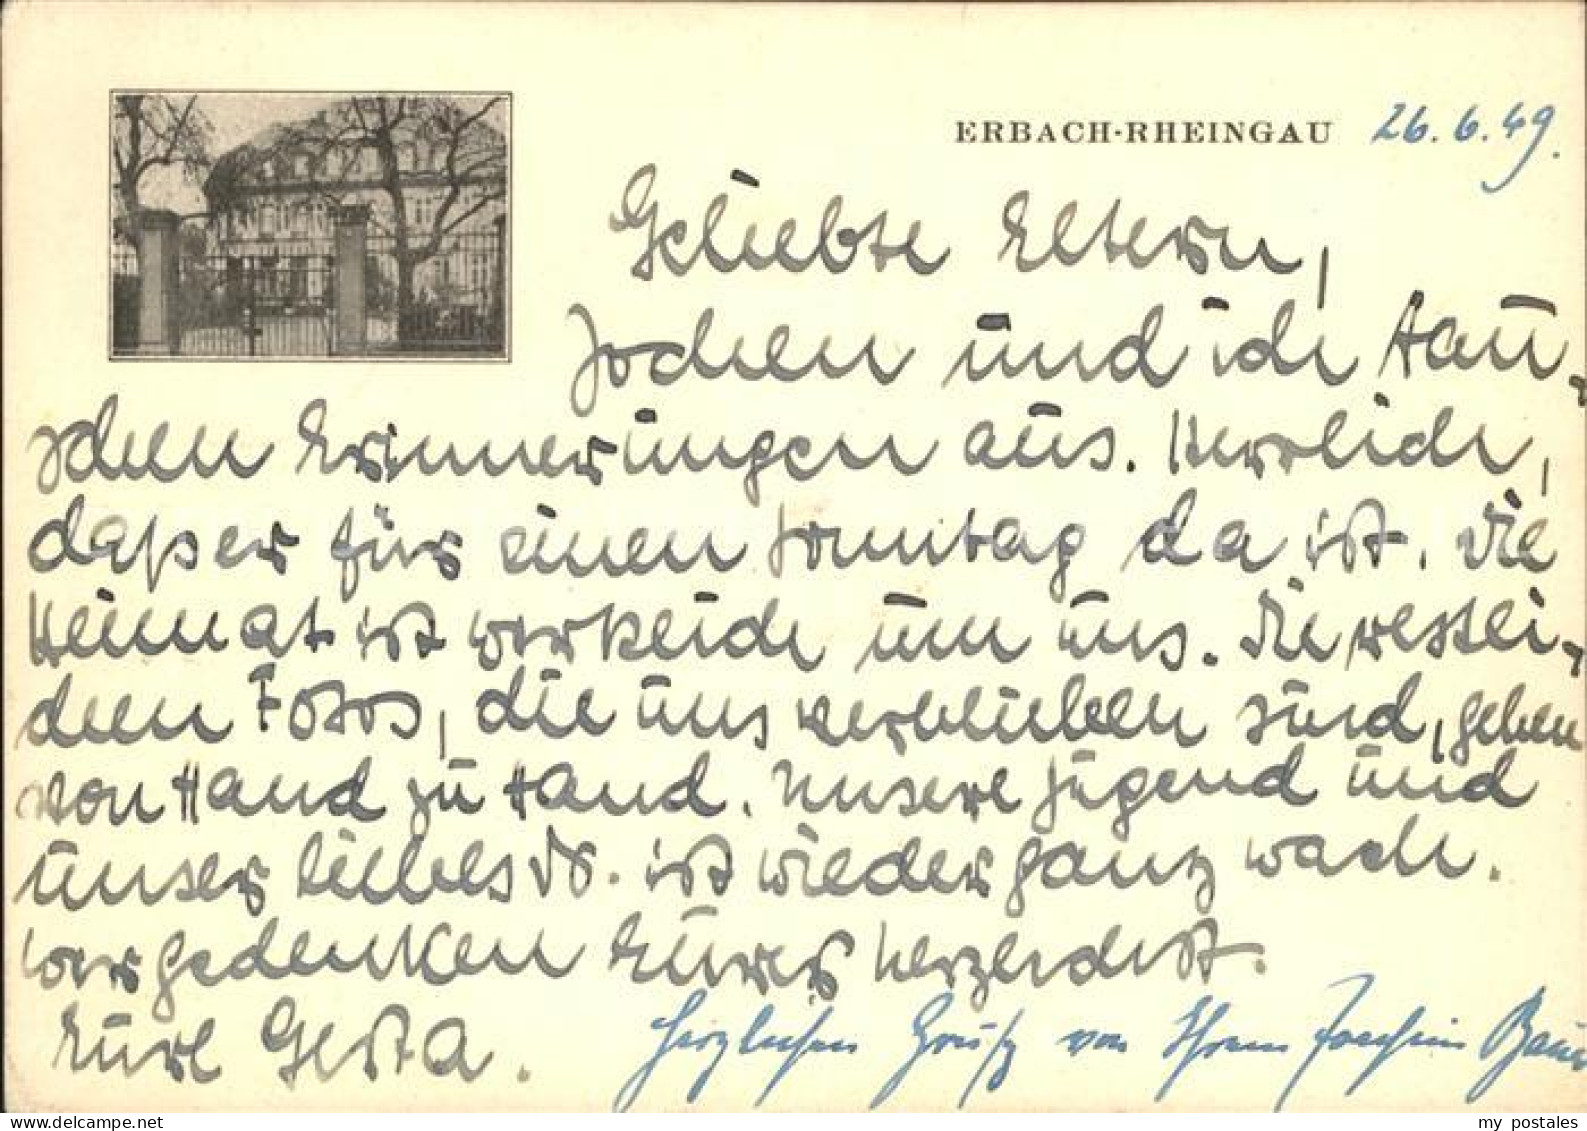 ERBACH-RHEINGAU 26.6.49.
Geliebte Eltern,
Jochen und ich tau-
schen Erinnerungen aus. Herrlich,
daß er für einen Sonntag da ist. Die
Heimat ist um uns. Die
Fotos, die uns verblieben sind, gehen
von Hand zu Hand. Unsere Jugend und
unser liebes is. ist wieder ganz wach.
Wir gedenken Eurer herzlichst.
Eure Gerta.
Herzlichen Gruß von Ihrem Joachim
my postales